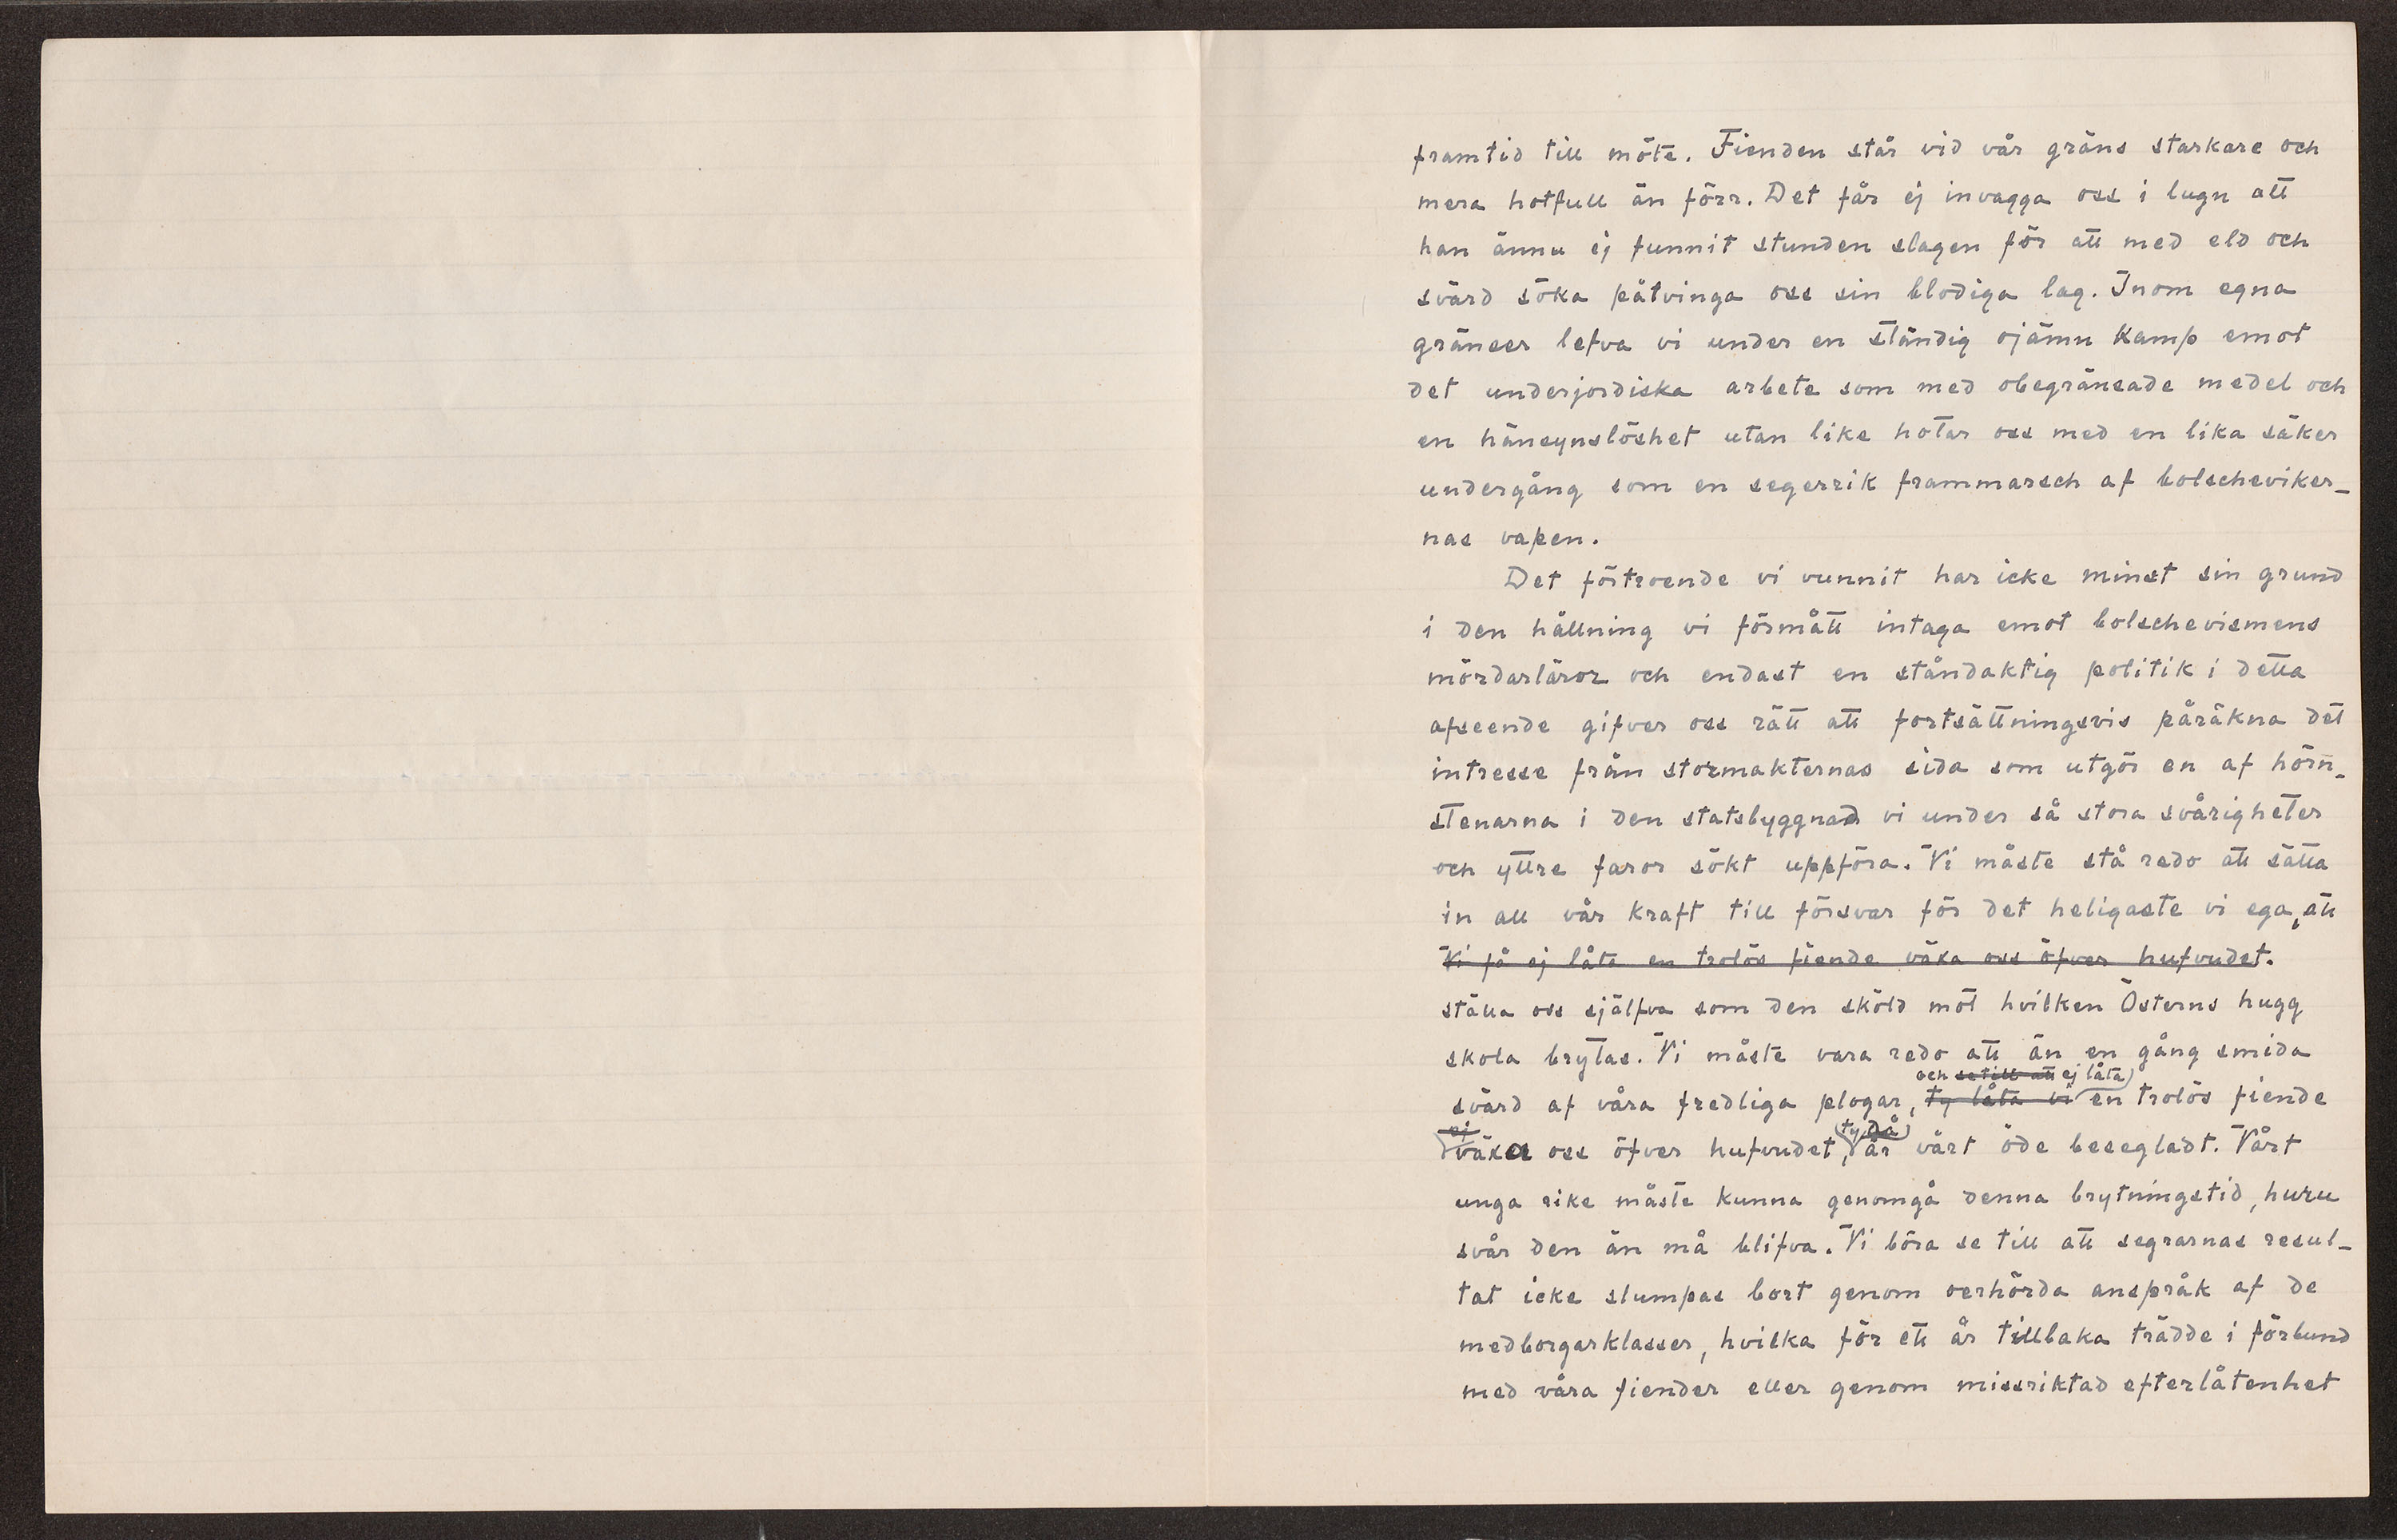 framtid till möte. Fienden står vid vår gräns starkare och
mera hotfull än förr. Det får ej invagga oss i lugn att
han ännu ej funnit stunden slagen för att med eld och
svärd söka påtvinga oss sin blodiga lag. Inom egna
gränser lefva vi under en ständig ojämn kamp emot
det underjordiska arbete som med obegränsade medel och
en hänsynslöshet utan like hotar oss med en lika säker
undergång som en segerrik frammarsch af bolscheviker-
nas vapen.
Det förtroende vi vunnit har icke minst sin grund
i den hållning vi förmått intaga emot bolschevismens
mördarläror och endast en ståndaktig politik i detta
afseende gifver oss rätt att fortsättningsvis påräkna det
intresse från stormakternas sida som utgör en af hörn-
stenarna i den statsbyggnad vi under så stora svårigheter
och yttre faror sökt uppföra. Vi måste stå redo att sätta
in all vår kraft till försvar för det heligaste vi ega, att
Vi få ej låta en trolös fiende växa oss öfver hufvudet.
ställa oss själfva som den sköld mot hvilken Österns hugg
skola brytas. Vi måste vara redo att än en gång smida
och se till att ej låta
svärd af våra fredliga plogar, ty låta vi en trolös fiende
ej ty då
växa oss öfver hufvudet, är vårt öde besegladt. Vårt
unga rike måste kunna genomgå denna brytningstid, huru
svår den än må blifva. Vi böra se till att segrarnas resul-
tat icke slumpas bort genom oerhörda anspråk af de
medborgarklasser, hvilka för ett år tillbaka trädde i förbund
med våra fiender eller genom missriktad efterlåtenhet